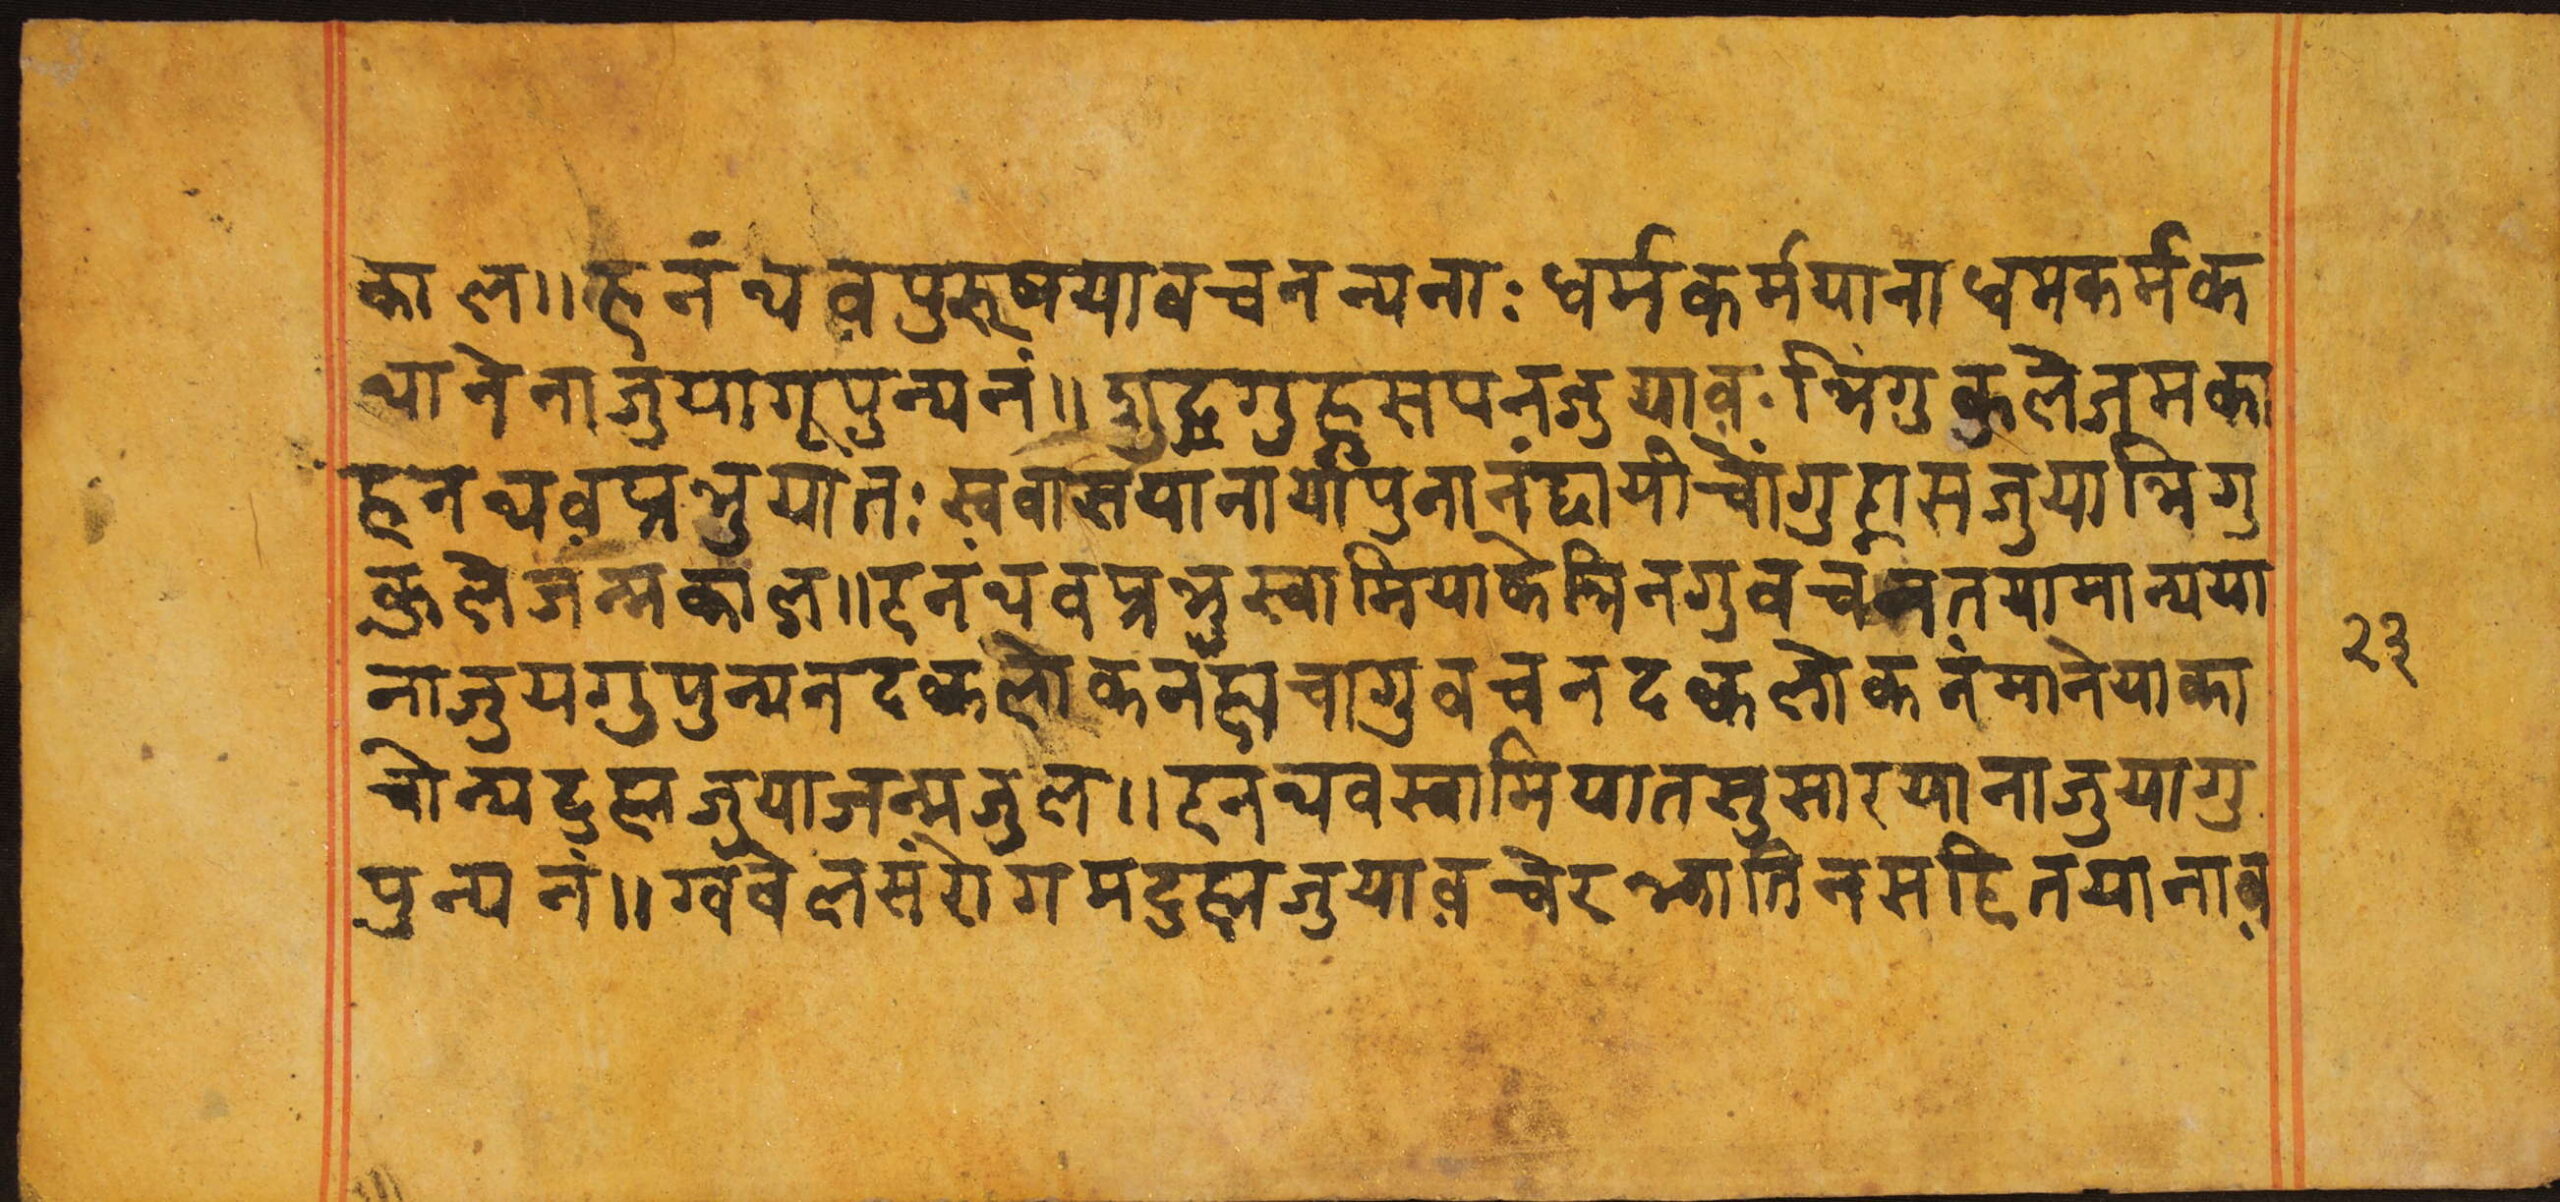 काल॥ हनंथव़पुरूषयावचनन्यनाः धर्मकर्मयाना धमकर्मक
थानेनाजुयागूपुन्यनं॥ शुद्रगुह्रसपनजुयाव़ः न्निगुकुलैजमका
हनथव़प्रभुयातः स्ववासयानायापुनानंद्दायीचोंगुह्रासजुयान्निगु
कुलैजन्मकाल॥ हनंथवप्रभुस्वामियाकेन्निनगुवचंनतयामान्यया
नाजुयगुपुन्यनदक्वलोकनंह्मचागुवचनदक्वलोकनंमानेयाका
चोन्यदुह्मजुयाजन्मजुल॥ हनथवस्वामियातसुसारयानाजुयागु
पुन्यनं॥ ग्वंवेलसंरोगमदुह्मजुयाव़चेरभ्नातिनसहितयानाव़
२३